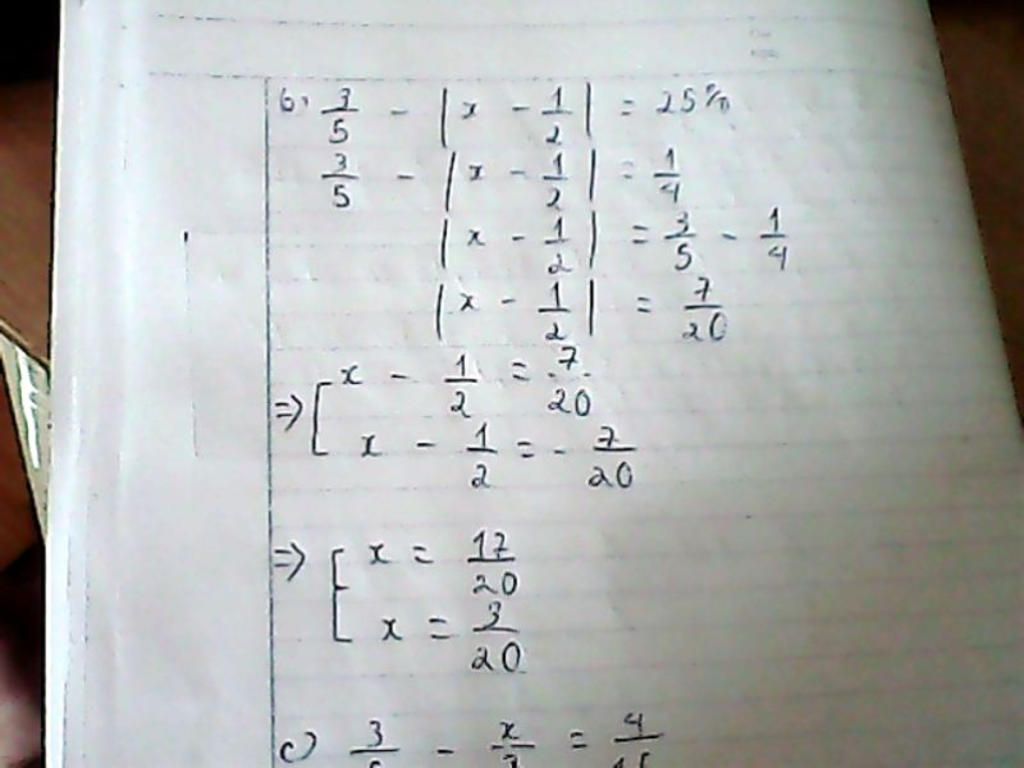 b, 3/5 - |x - 1/2| = 25%
3/5 - |x - 1/2| = 1/4
|x - 1/2| = 3/5 - 1/4
|x - 1/2| = 7/20
=> [ x - 1/2 = 7/20
x - 1/2 = - 7/20
=> [ x = 17/20
x = 3/20
c) 3 - x = 4